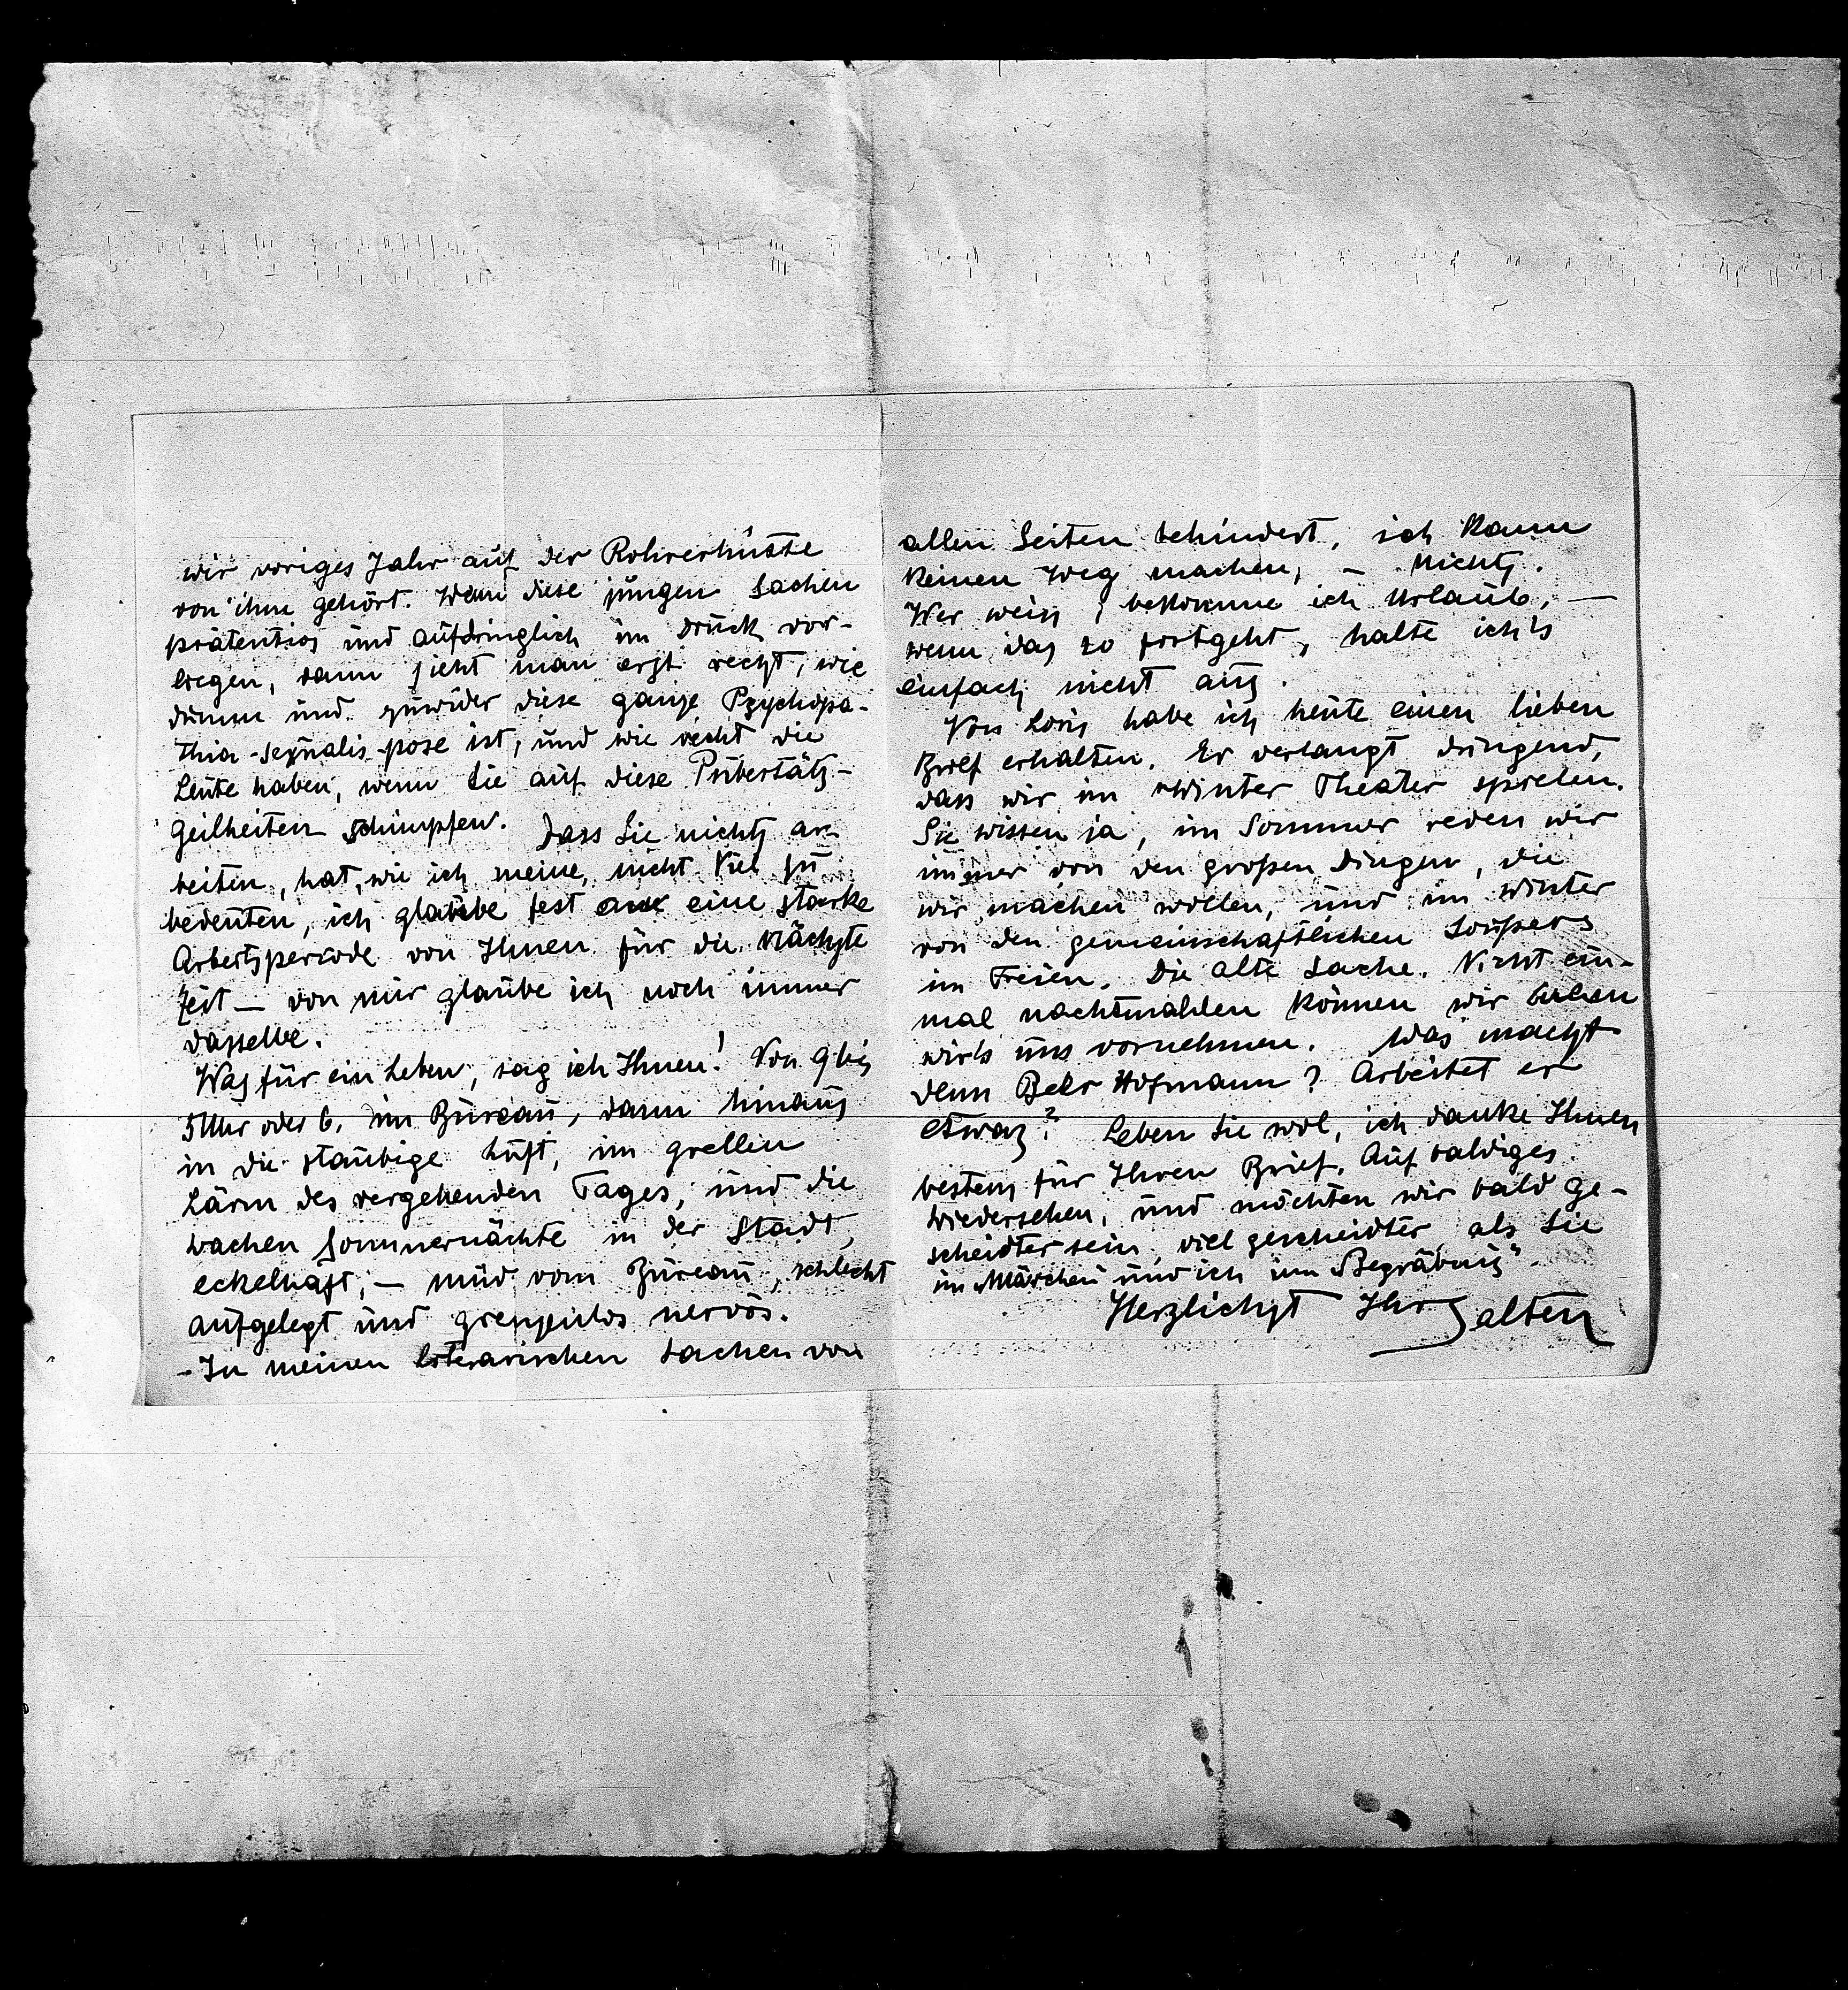 wir voriges Jahr auf der Rohrerhütte
von ihm gehört. Wenn diese jungen Sachen
prätentiös und aufdringlich im Druck vor-
liegen, dann sieht man erst recht, wie
dumm und zuwider diese ganze Psychopa-
thia-sexualis-pose ist, und wie recht die
Leute haben, wenn Sie auf diese Pubertäts-
geilheiten schimpfen. Dass Sie nichts ar-
beiten, hat, wie ich meine, nicht viel zu
bedeuten, ich glaube fest an eine starke
Arbeitsperiode von Ihnen für die nächste
Zeit – von mir glaube ich noch immer
dasselbe.
Was für ein Leben, sag ich Ihnen! Von 9 bis
5 Uhr oder 6. im Bureau, dann hinaus
in die staubige Luft, im grellen
Lärm des vergehenden Tages, und die
wachen Sommernächte in der Stadt,
eckelhaft, – müd vom Bureau, schlecht
aufgelegt und grenzenlos nervös.
– In meinen literarischen Sachen von
allen Seiten behindert, ich kann
keinen Weg machen, – nichts.
Wer weiss, bekomme ich Urlaub, –
wenn das so fortgeht, halte ich's
einfach nicht aus.
Von Loris habe ich heute einen lieben
Brief erhalten. Er verlangt dringend,
dass wir im Winter Theater spielen.
Sie wissen ja, im Sommer reden wir
immer von den großen Dingen, die
wir machen wollen, und im Winter
von den gemeinschaftlichen Soupers
im Freien. Die alte Sache. Nicht ein-
mal nachtmahlen können wir
wir's uns vornehmen. Was macht
denn Beer Hofmann? Arbeitet er
etwas? Leben Sie wol, ich danke Ihnen
bestens für Ihren Brief. Auf baldiges
Wiedersehen, und möchten wir bald ge-
scheidter sein, viel gescheidter, als Sie
im Märchen und ich im „Begräbnis“.
Herzlichst Ihr Salten